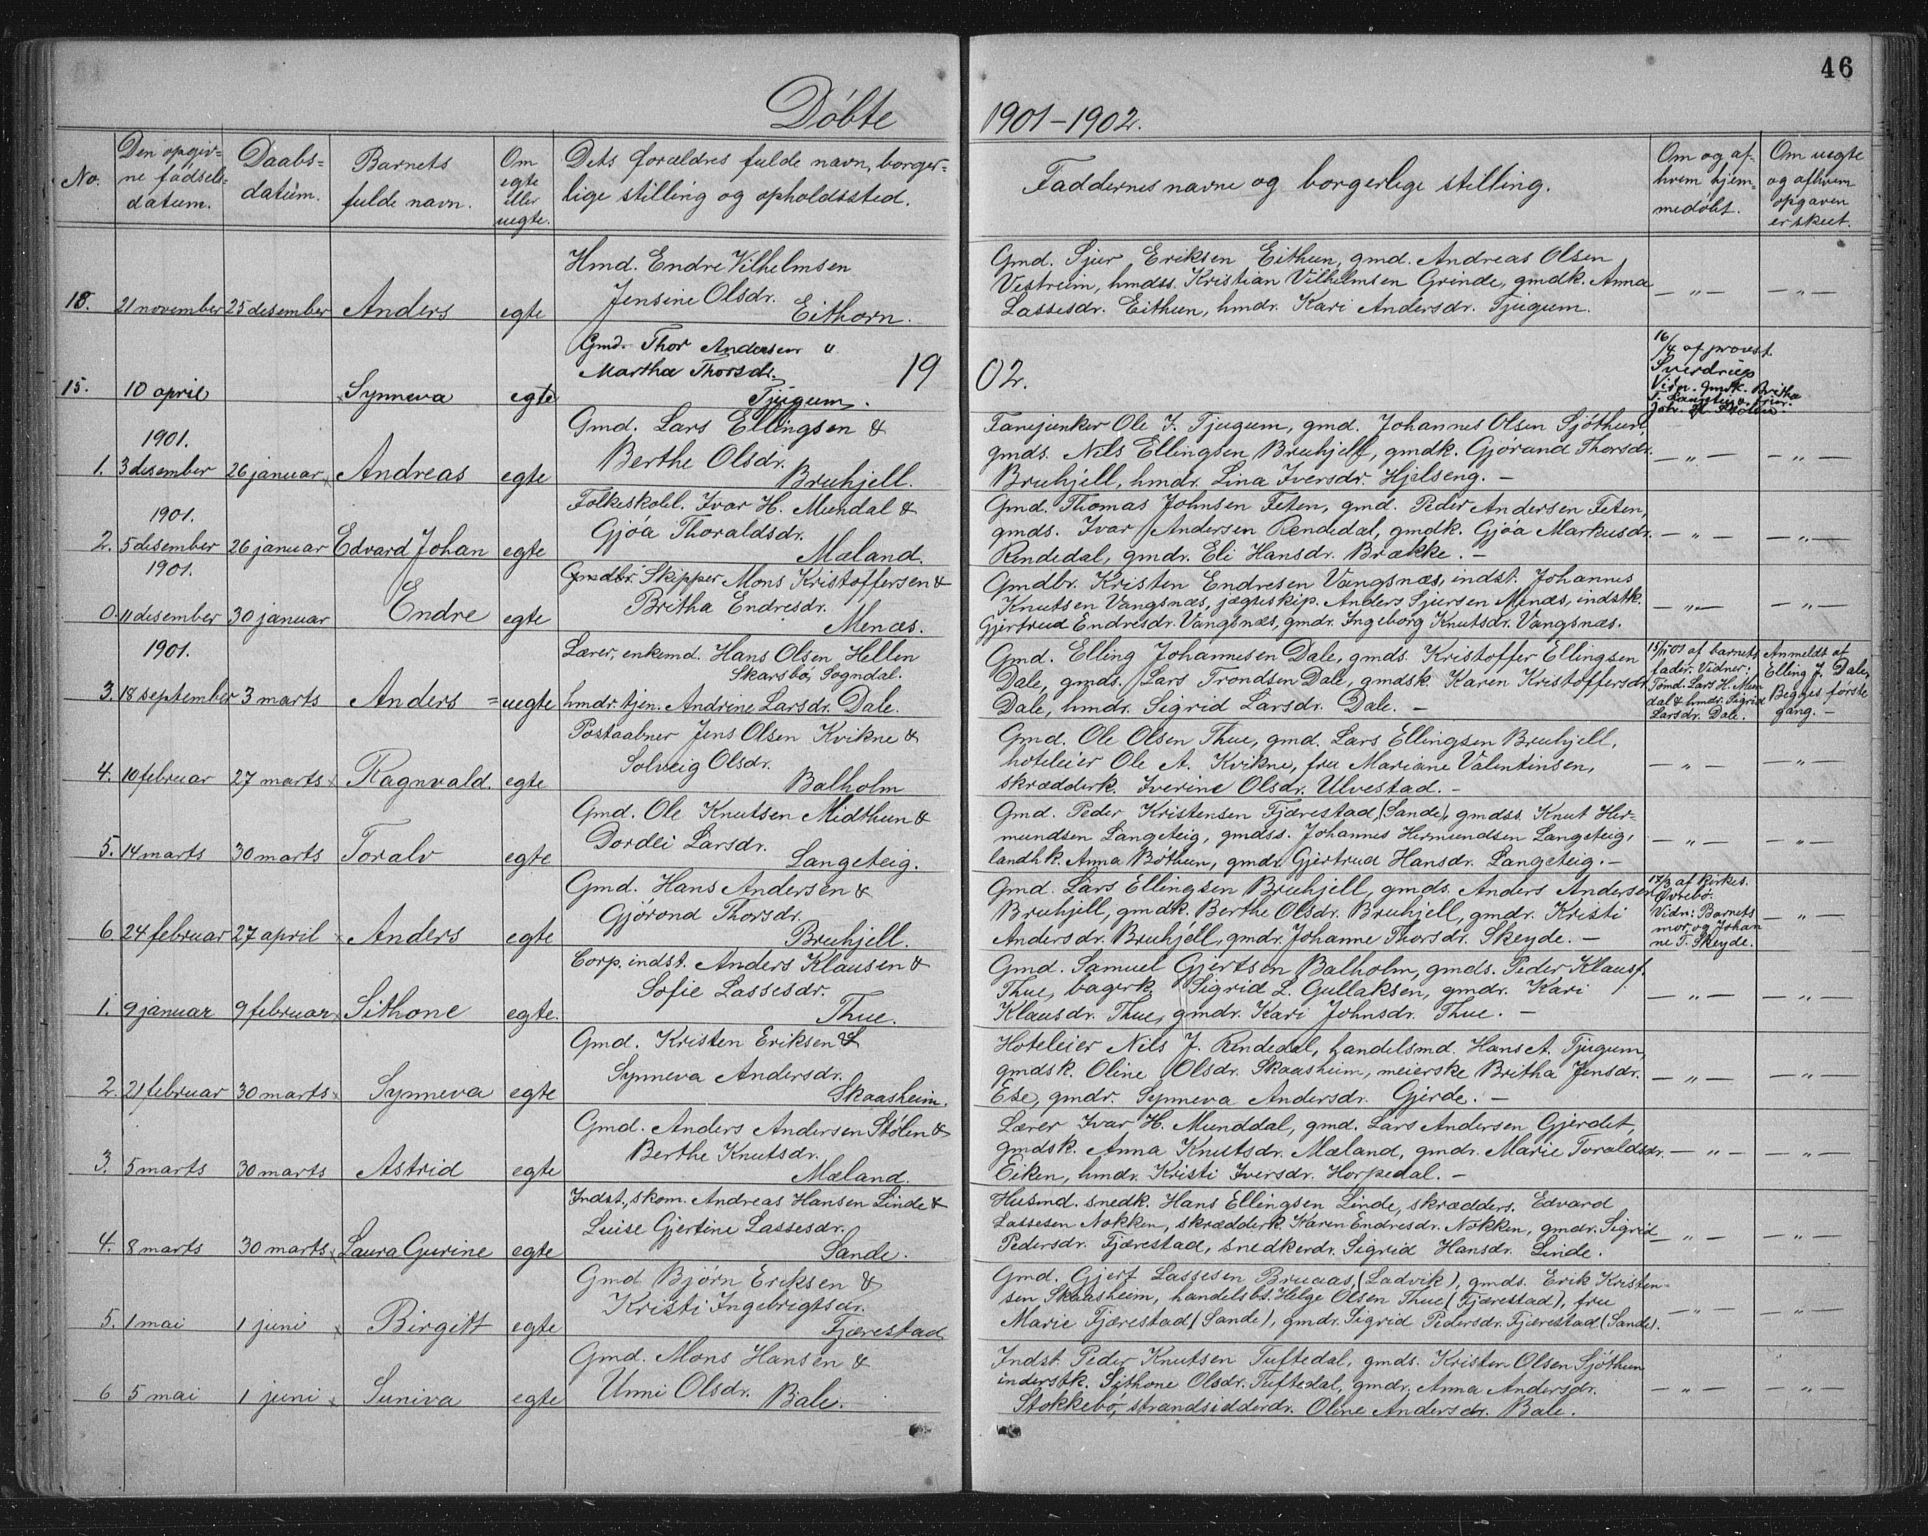 46
Döbte 1901-1902.
No. Den opgiv= ne fødsels= datum. Daabs= datum. Barnets fulde navn. Om egte eller uegte. Dets forældres fulde navn, borger= lige stilling og opholdssted. Faddernes navne og borgerlige stilling. Om og af hvem hjem= medøbt. Om uegte og afhvem opgaven er skeet.
Hmd. Endre Vilhelmsen Gmd. Sjur Eriksen Eithun, gmd. Andreas Olsen
Jensine Olsdr. Vestreim, hmdss. Kristian Vilhelmsen Grinde, gmdk. Anna
18. 21 november 25 desember Anders egte Eithorn. Lassesdr. Eithun, hmdr. Kari Andersdr. Tjugum. — „ — — „ —
Gmd. Thor Andersen u 16/4 af provst
Martha Thorsdr. 19 02. Sverdrup
15. 10 april Synneva egte Tjugum. Vidn. gmdk. Britha
1901. Gmd. Lars Ellingsen & Fanejunker Ole J. Tjugum, gmd. Johannes Olsen Sjøthun,
Berthe Olsdr. gmds. Nils Ellingsen Bruhjell, gmdk. Gjörand Thorsdr.
1. 3 desember 26 januar Andreas egte Bruhjell. Bruhjell, hmdr. Lina Iversdr. Hjelseng. — — „ — — „ —
1901. Folkeskolel. Ivar H. Mundal & Gmd. Thomas Johnsen Feten, gmd. Peder Andersen Feten,
Gjøa Thoraldsdr. gmds. Ivar Andersen Rendedal, gmdk. Gjøa Markusdr.
2. 5 desember 26 januar Edvard Johan egte Mæland. Rendedal, gmdr. Eli Hansdr. Brække. — — „ — — „ —
1901. Gmdbr. Skipper Mons Kristoffersen & Gmdbr. Kristen Endresen Vangsnæs, indst. Johannes
Britha Endresdr. Knutsen Vangsnæs, jægteskip. Anders Sjursen Menæs, indstk.
0. 11 desember 30 januar Endre egte Menæs. Gjertrud Endresdr. Vangsnæs, gmdr. Ingeborg Knutsdr. Vangsnæs. — „ — — „ —
1901. Lærer, enkemd. Hans Olsen Hellen Gmd. Elling Johannesen Dale, gmds. Kristoffer Ellingsen af barnets Anmeldt af
Skarsbø, Sogndal. Dale, gmds. Lars Trondsen Dale, gmdsk. Karen Kristoffersdr. fader. Vidner: Elling J. Dale,
3. 18 september 3 marts Anders = uegte hmdr. tjen. Andrine Larsdr. Dale. Dale, hmdr. Sigrid Larsdr. Dale. — Tømd. Lars H. Mun dal & hmdr. Sigrid Larsdr. Dale. Begges første gang. —
Postaabner Jens Olsen Kvikne & Gmd. Ole Olsen Thue, gmd. Lars Ellingsen Bruhjell,
Solveig Olsdr. hoteleier Ole A. Kvikne, fru Mariane Valentinsen,
4. 10 februar 27 marts Ragnvald. egte Balholm skrædderk. Iverine Olsdr. Ulvestad. — — „ — — „ —
Gmd. Ole Knutsen Midthun & Gmd. Peder Kristensen Fjærestad, (Sande), gmdss. Knut Her=
Dordei Larsdr. mundsen Langeteig, gmdss. Johannes Hermundsen Langeteig,
5. 14 marts 30 marts Toralv egte Langeteig. landhk. Anna Böthun, gmdr. Gjertrud Hansdr. Langeteig. — — „ — — „ —
Gmd. Hans Andersen & Gmd. Lars Ellingsen Bruhjell, gmds. Anders Andersen 17/3 af kirkes.
Gjörond Thorsdr. Bruhjell, gmdk. Berthe Olsdr. Bruhjell, gmdr. Kristi Øvrebø.
6 24 februar 27 april Anders egte Bruhjell. Andersdr. Bruhjell, gmdr. Johanne Thorsdr. Skeyde. — Vidn: Barnets mor, og Johan ne T. Skeyde. — „ —
Corp. indst. Anders Klausen & Gmd. Samuel Gjertsen Balholm, gmds. Peder Klaus.
Sofie Lassesdr. Thue, bagerk. Sigrid L. Gullaksen, gmdr. Kari
1. 9 januar 9 februar Sithone egte. Thue. Klausdr. Thue, gmdr. Kari Johnsdr. Thue. — — „ — — „ —
Gmd. Kristen Eriksen & Hoteleier Nils J. Rendedal, handelsmd. Hans A. Tjugum,
Synneva Andersdr. gmdsk. Oline Olsdr. Skaasheim, meierske Britha Jensdr.
2. 21 februar 30 marts Synneva egte Skaasheim. Ese, gmdr. Synneva Andersdr. Gjerde. — — „ — — „ —
Gmd. Anders Andersen Stølen & Lærer Ivar H. Munddal, gmd. Lars Andersen Gjerdet,
Berthe Knutsdr. gmdsk. Anna Knutsdr. Mæland, gmdr. Marie Toraldsdr.
3. 5 marts 30 marts Astrid egte Mæland. Eiken, hmdr. Kristi Iversdr. Horpedal. — — „ — — „ —
Indst., skom. Andreas Hansen Linde & Husmd. snedk. Hans Ellingsen Linde, skrædders. Edvard
Luise Gjertine Lassesdr. Lassesen Nokken, skrædderk. Karen Endresdr. Nokken, gmdr. Sigrid
4. 8 marts 30 marts Laura Gurine egte Sande. Pedersdr. Fjærestad, snedkerdr. Sigrid Hansdr. Linde. — „ — — „ —
Gmd Bjørn Eriksen & Gmd. Gjert Lassesen Bruaas (Ladvik), gmds. Erik Kristen=
Kristi Ingebrigtsdr. sen Skaasheim, handelsbs. Helge Olsen Thue (Fjærestad), fru
5. 1 mai 1 juni Birgitt egte Fjærestad Marie Fjærestad (Sande), gmdr. Sigrid Pedersdr. Fjærestad (Sande). — „ — — „ —
Gmd. Mons Hansen & Indst. Peder Knutsen Tuftedal, gmds. Kristen Olsen Sjøthun
Unni Olsdr. inderstk. Sithone Olsdr. Tuftedal, gmdr. Anna Andersdr.
6 5 mai 1 juni Suniva egte Bale. Stokkebø, strandsidderdr. Oline Andersdr. Bale. — „ — — „ —